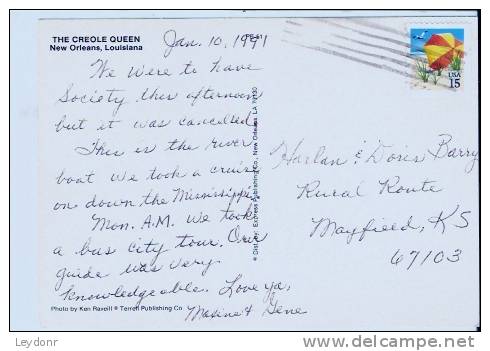 THE CREOLE QUEEN
New Orleans, Louisiana
Jan. 10, 1991
We were to have
Society this afternoon
but it was cancelled
This is the river
boat we took a cruise
on down the Mississippi.
Mon. A.M. we took
a bus city tour. Our
guide was very
knowledgeable. Love ya,
Maxine & Gene
Photo by Ken Raveill © Terrell Publishing Co
Express Publishing Co., New Orleans, LA 70130
USA
15
Harlan & Doris Barry
Rural Route
Mayfield, KS
67103
Leydonr
www.delcampe.net